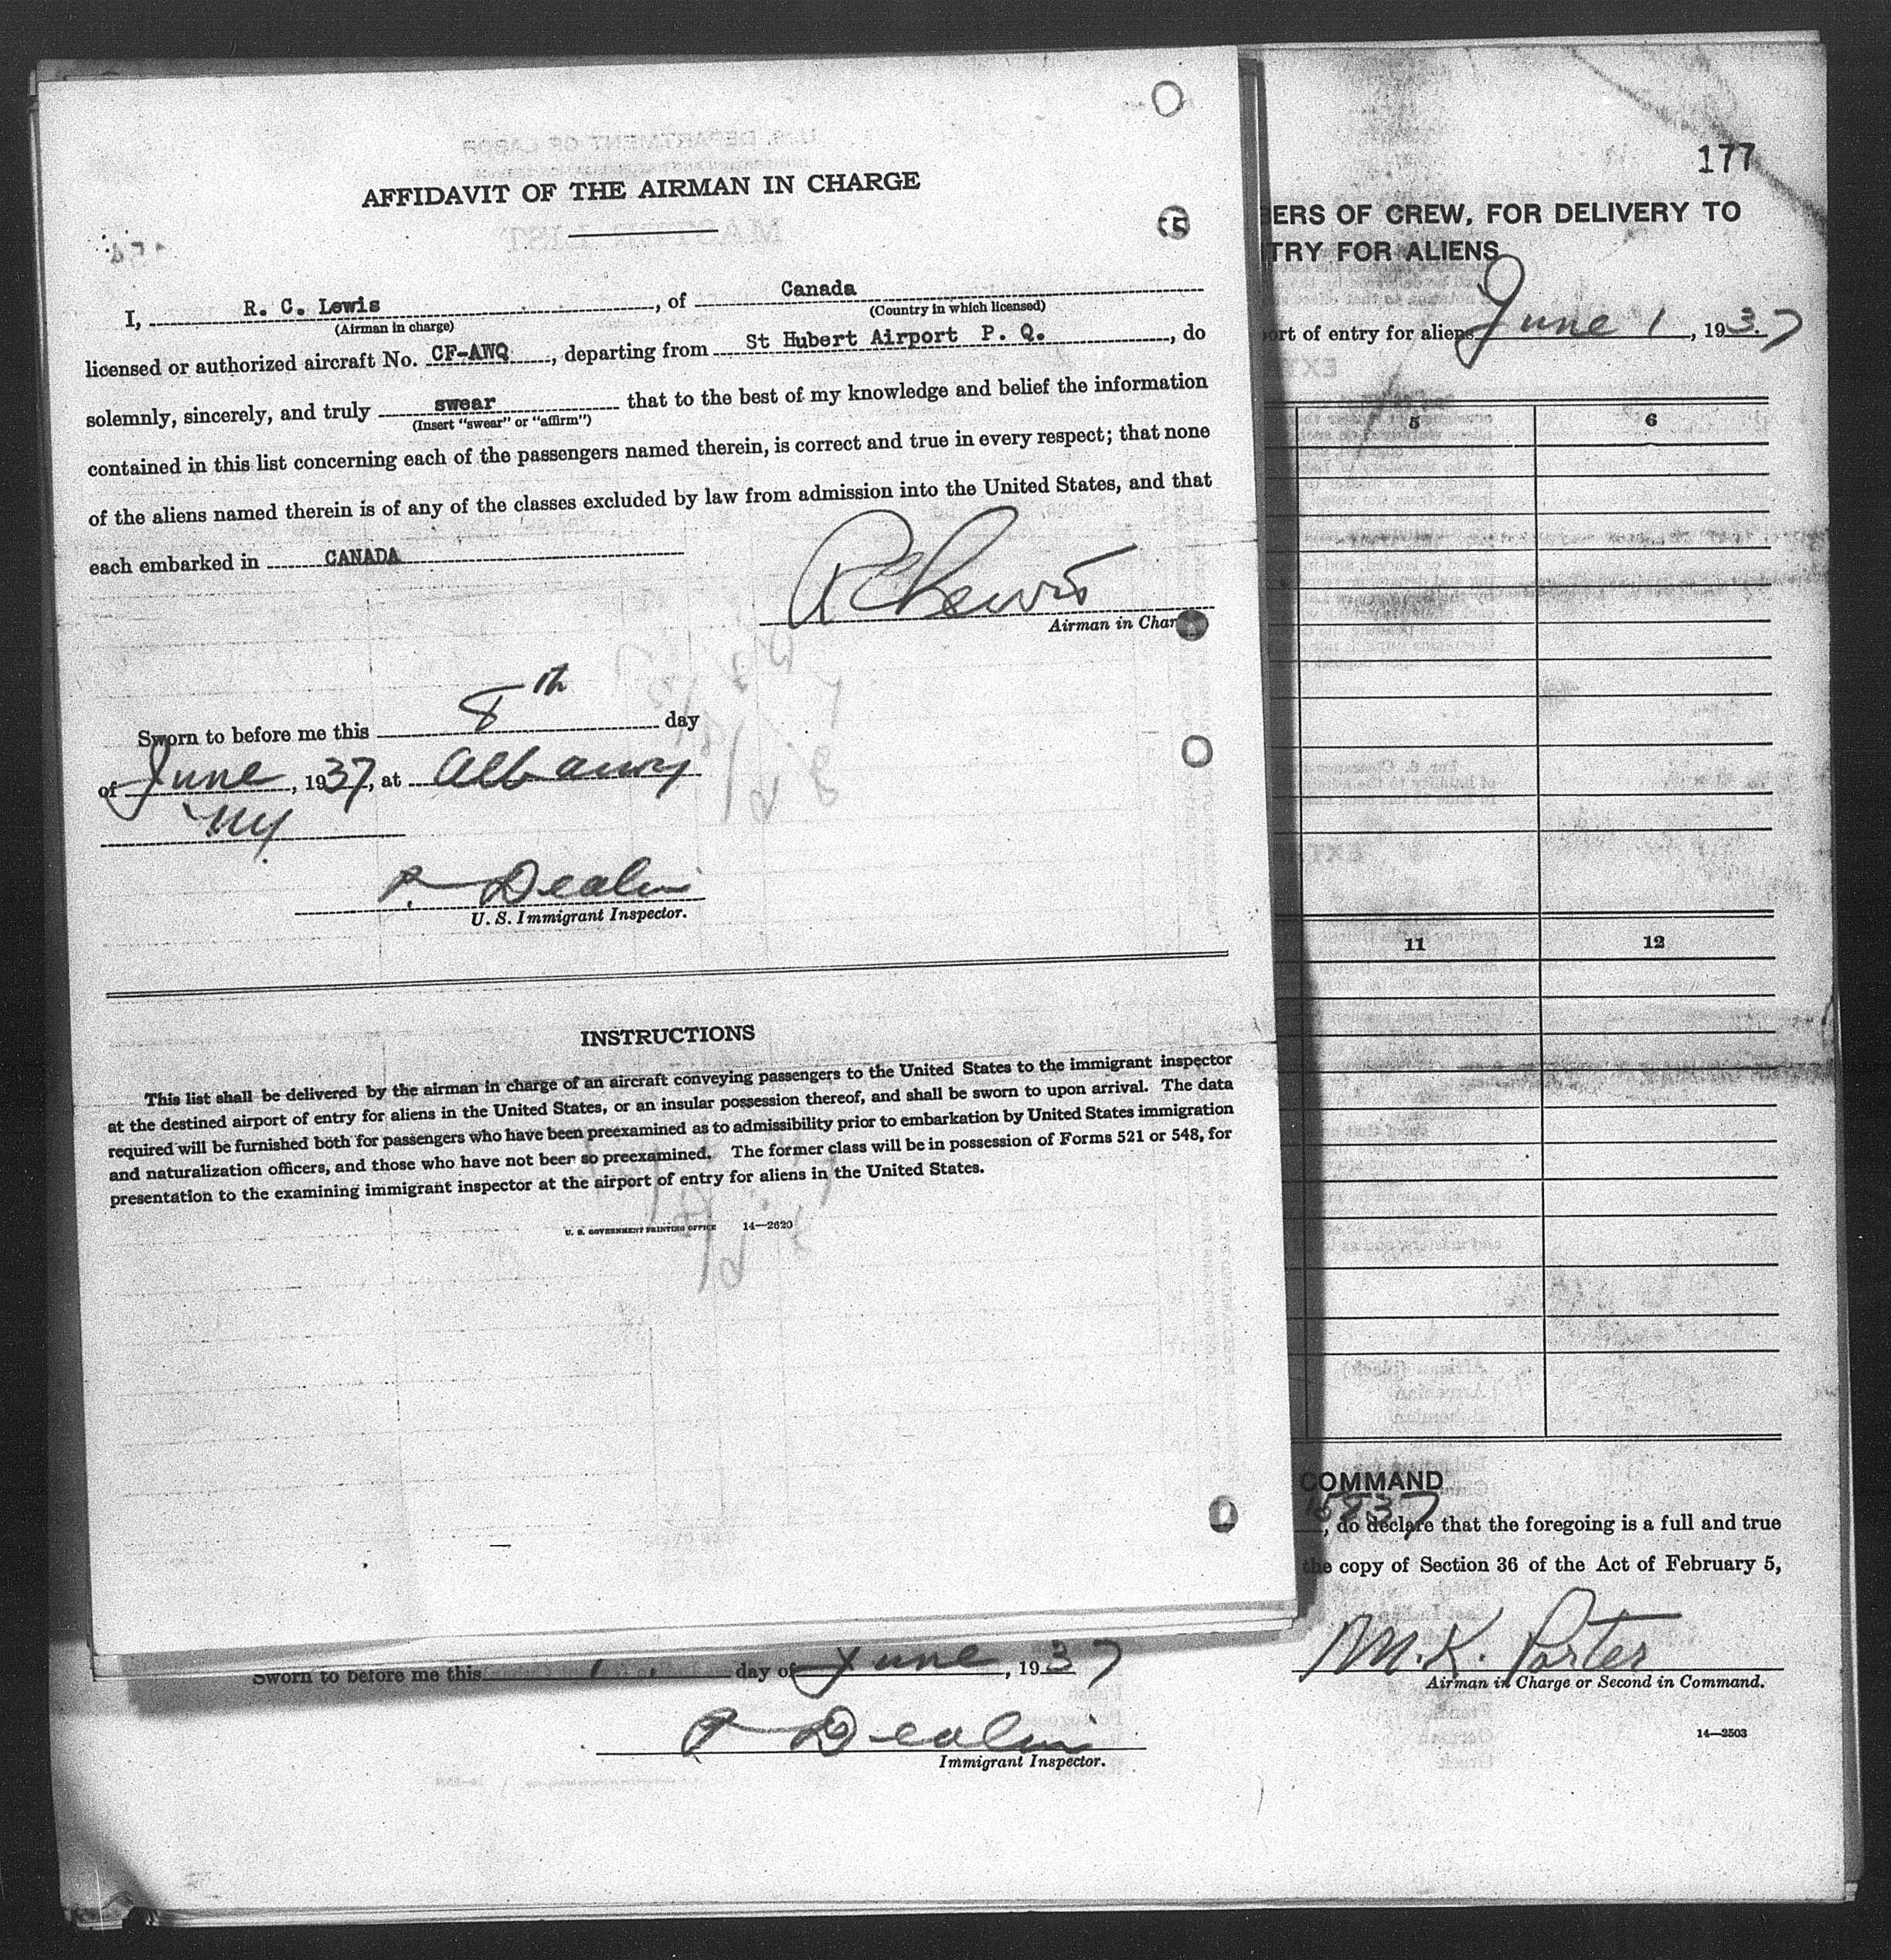 AFFIDAVIT OF THE AIRMAN IN CHARGE
I, R. C. Lewis, of Canada
(Airman in charge) (Country in which licensed)
licensed or authorized aircraft No. CF-AWQ, departing from St Hubert Airport P. Q., do
solemnly, sincerely, and truly swear that to the best of my knowledge and belief the information
(Insert "swear" or "affirm")
contained in this list concerning each of the passengers named therein, is correct and true in every respect; that none
of the aliens named therein is of any of the classes excluded by law from admission into the United States, and that
each embarked in CANADA
R C Lewis
Airman in Char
Sworn to before me this 8th day
of June, 1937, at Albany
NY
U. S. Immigrant Inspector.
INSTRUCTIONS
This list shall be delivered by the airman in charge of an aircraft conveying passengers to the United States to the immigrant inspector
at the destined airport of entry for aliens in the United States, or an insular possession thereof, and shall be sworn to upon arrival. The data
required will be furnished both for passengers who have been preexamined as to admissibility prior to embarkation by United States immigration
and naturalization officers, and those who have not been so preexamined. The former class will be in possession of Forms 521 or 548, for
presentation to the examining immigrant inspector at the airport of entry for aliens in the United States.
U. S. GOVERNMENT PRINTING OFFICE 14—2620
177
BERS OF CREW, FOR DELIVERY TO
TRY FOR ALIENS
ort of entry for aliens June 1, 1937
5 6
11 12
COMMAND
, do declare that the foregoing is a full and true
the copy of Section 36 of the Act of February 5,
M. K. Porter
Airman in Charge or Second in Command.
14—2503
Sworn to before me this 1 day of June, 1937
Immigrant Inspector.